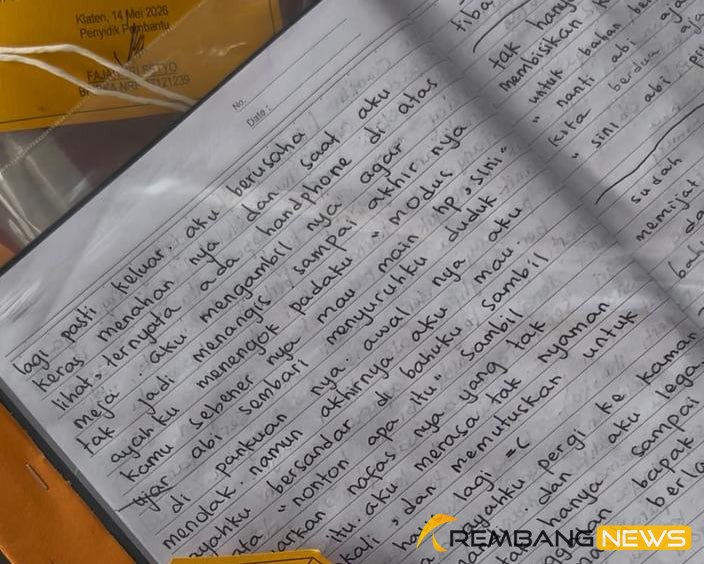 Klaten, 14 Mei 2026
Penyidik Pembantu
No.
Date:
lagi pasti keluar. aku berusaha
keras menahan nya dan saat aku
lihat, ternyata ada handphone di atas
meja. aku mengambil nya agar
tak jadi menangis sampai akhir nya
ayahku menengok padaku " modus
kamu sebener nya mau main hp, sini"
ujar abi sembari menyuruhku duduk
di pankuan nya. awal nya aku
menolak. namun akhirnya aku mau.
ayahku bersandar di bahuku sambil
"nonton apa itu" sambil
nafas nya yang tak
itu. aku merasa tak nyaman
kali, dan memutuskan untuk
lagi =(
ayahku pergi ke kamar
dan aku lega
hanya sampai
bapak
tiba
tak hanya
membisikan
"untuk bahan
"nanti abi
kita berdua
"sini abi
sudah
memijat
REMBANGNEWS